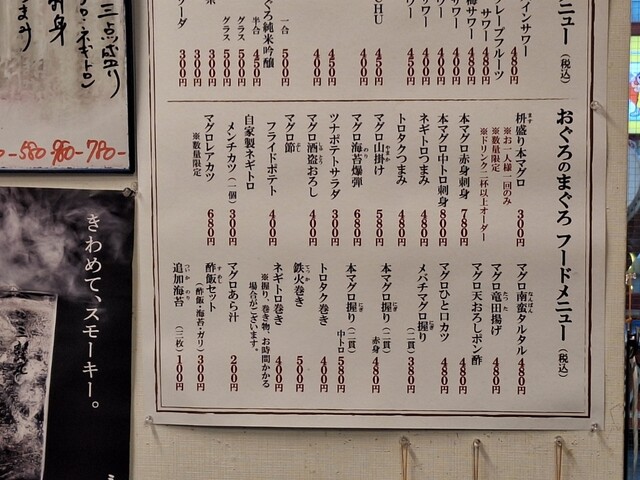 メニュー（税込）
インサワー 480円
レープフルーツ
サワー 480円
梅サワー 480円
サワー 480円
ワー 400円
ワー 400円
ワー 450円
CHU 450円
400円
450円
400円
一合 500円
ぐろ純米吟醸
半合 450円
グラス 500円
グラス 500円
300円
300円
ソーダ 300円
おぐろのまぐろ フードメニュー（税込）
枡盛り本マグロ 300円
※お一人様一回のみ
※数量限定
※ドリンク二杯以上オーダー
本マグロ赤身刺身 780円
本マグロ中トロ刺身 800円
ネギトロつまみ 480円
トロタクつまみ 480円
マグロ山掛け 580円
マグロ海苔爆弾 680円
ツナポテトサラダ 300円
マグロ酒盗おろし 400円
マグロ節
フライドポテト 400円
自家製ネギトロ
メンチカツ（一個）300円
マグロレアカツ 680円
※数量限定
マグロ南蛮タルタル 480円
マグロ竜田揚げ 480円
マグロ天おろしポン酢 480円
マグロひと口カツ 480円
メバチマグロ握り（二貫）380円
本マグロ握り（二貫）赤身 480円
本マグロ握り（二貫）中トロ 580円
トロタク巻き 450円
鉄火巻き 500円
ネギトロ巻き 400円
※握り、巻き物、お時間かかる
場合がございます。
マグロあら汁 200円
酢飯セット
（酢飯・海苔・ガリ）300円
追加海苔（三枚）100円
三点盛り
ロ・ネギトロ）
刺身
つまみ
580- 980- 780-
きわめて、スモーキー。